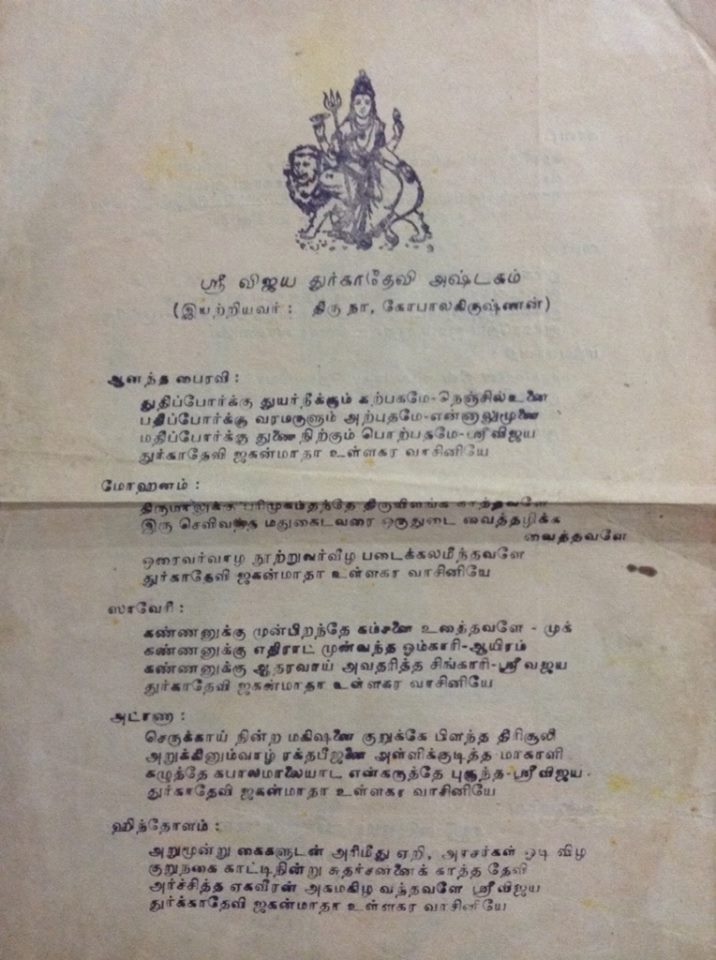 ஸ்ரீ விஜய துர்காதேவி அஷ்டகம்
(இயற்றியவர் : திரு நா, கோபாலகிருஷ்ணன்)
ஆனந்த பைரவி :
துதிப்போர்க்கு துயர்நீக்கும் கற்பகமே-நெஞ்சில்உனை
பதிப்போர்க்கு வரமருளும் அற்புதமே-எந்நாலுமுனை
மதிப்போர்க்கு துணைநிற்கும் பொற்பதமே-ஸ்ரீவிஜய
துர்காதேவி ஜகன்மாதா உள்ளகர வாசினியே
மோஹனம் :
திருமாலுக்கு பரிமுகம்தந்தே திருவிளங்க காத்தவளே
இரு செவிவந்த மதுகைடவரை ஒருதுடை வைத்தழிக்க
வைத்தவளே
ஓரைவர்வாழ நூற்றுவர்வீழ படைக்கலமீந்தவளே
துர்காதேவி ஜகன்மாதா உள்ளகர வாசினியே
ஸாவேரி :
கண்ணனுக்கு முன்பிறந்தே கம்சனை உதைத்தவளே - முக்
கண்ணனுக்கு எதிராட் முன்வந்த ஓம்காரி-ஆயிரம்
கண்ணனுக்கு ஆதரவாய் அவதரித்த சிங்காரி-ஸ்ரீவஜய
துர்காதேவி ஜகன்மாதா உள்ளகர வாசினியே
அடாணு :
செருக்காய் நின்ற மகிஷனை குறுக்கே பிளந்த திரிசூலி
அறுக்கினும்வாழ் ரக்தபீஜனை அள்ளிக்குடித்த மாகாளி
கழுத்தே கபாலமாலையாட என்கருத்தே புகுந்த-ஸ்ரீவிஜய-
துர்காதேவி ஜகன்மாதா உள்ளகர வாசினியே
ஹிந்தோளம் :
அறுமூன்று கைகளுடன் அரிமீது ஏறி, அரசர்கள் ஓடி விழ
குறுநகை காட்டிநின்று சுதர்சனனைக் காந்த தேவி
அர்ச்சித்த ஏகவீரன் அகமகிழ வந்தவளே ஸ்ரீவிஜய
துர்க்காதேவி ஜகன்மாதா உள்ளகர வாசினியே